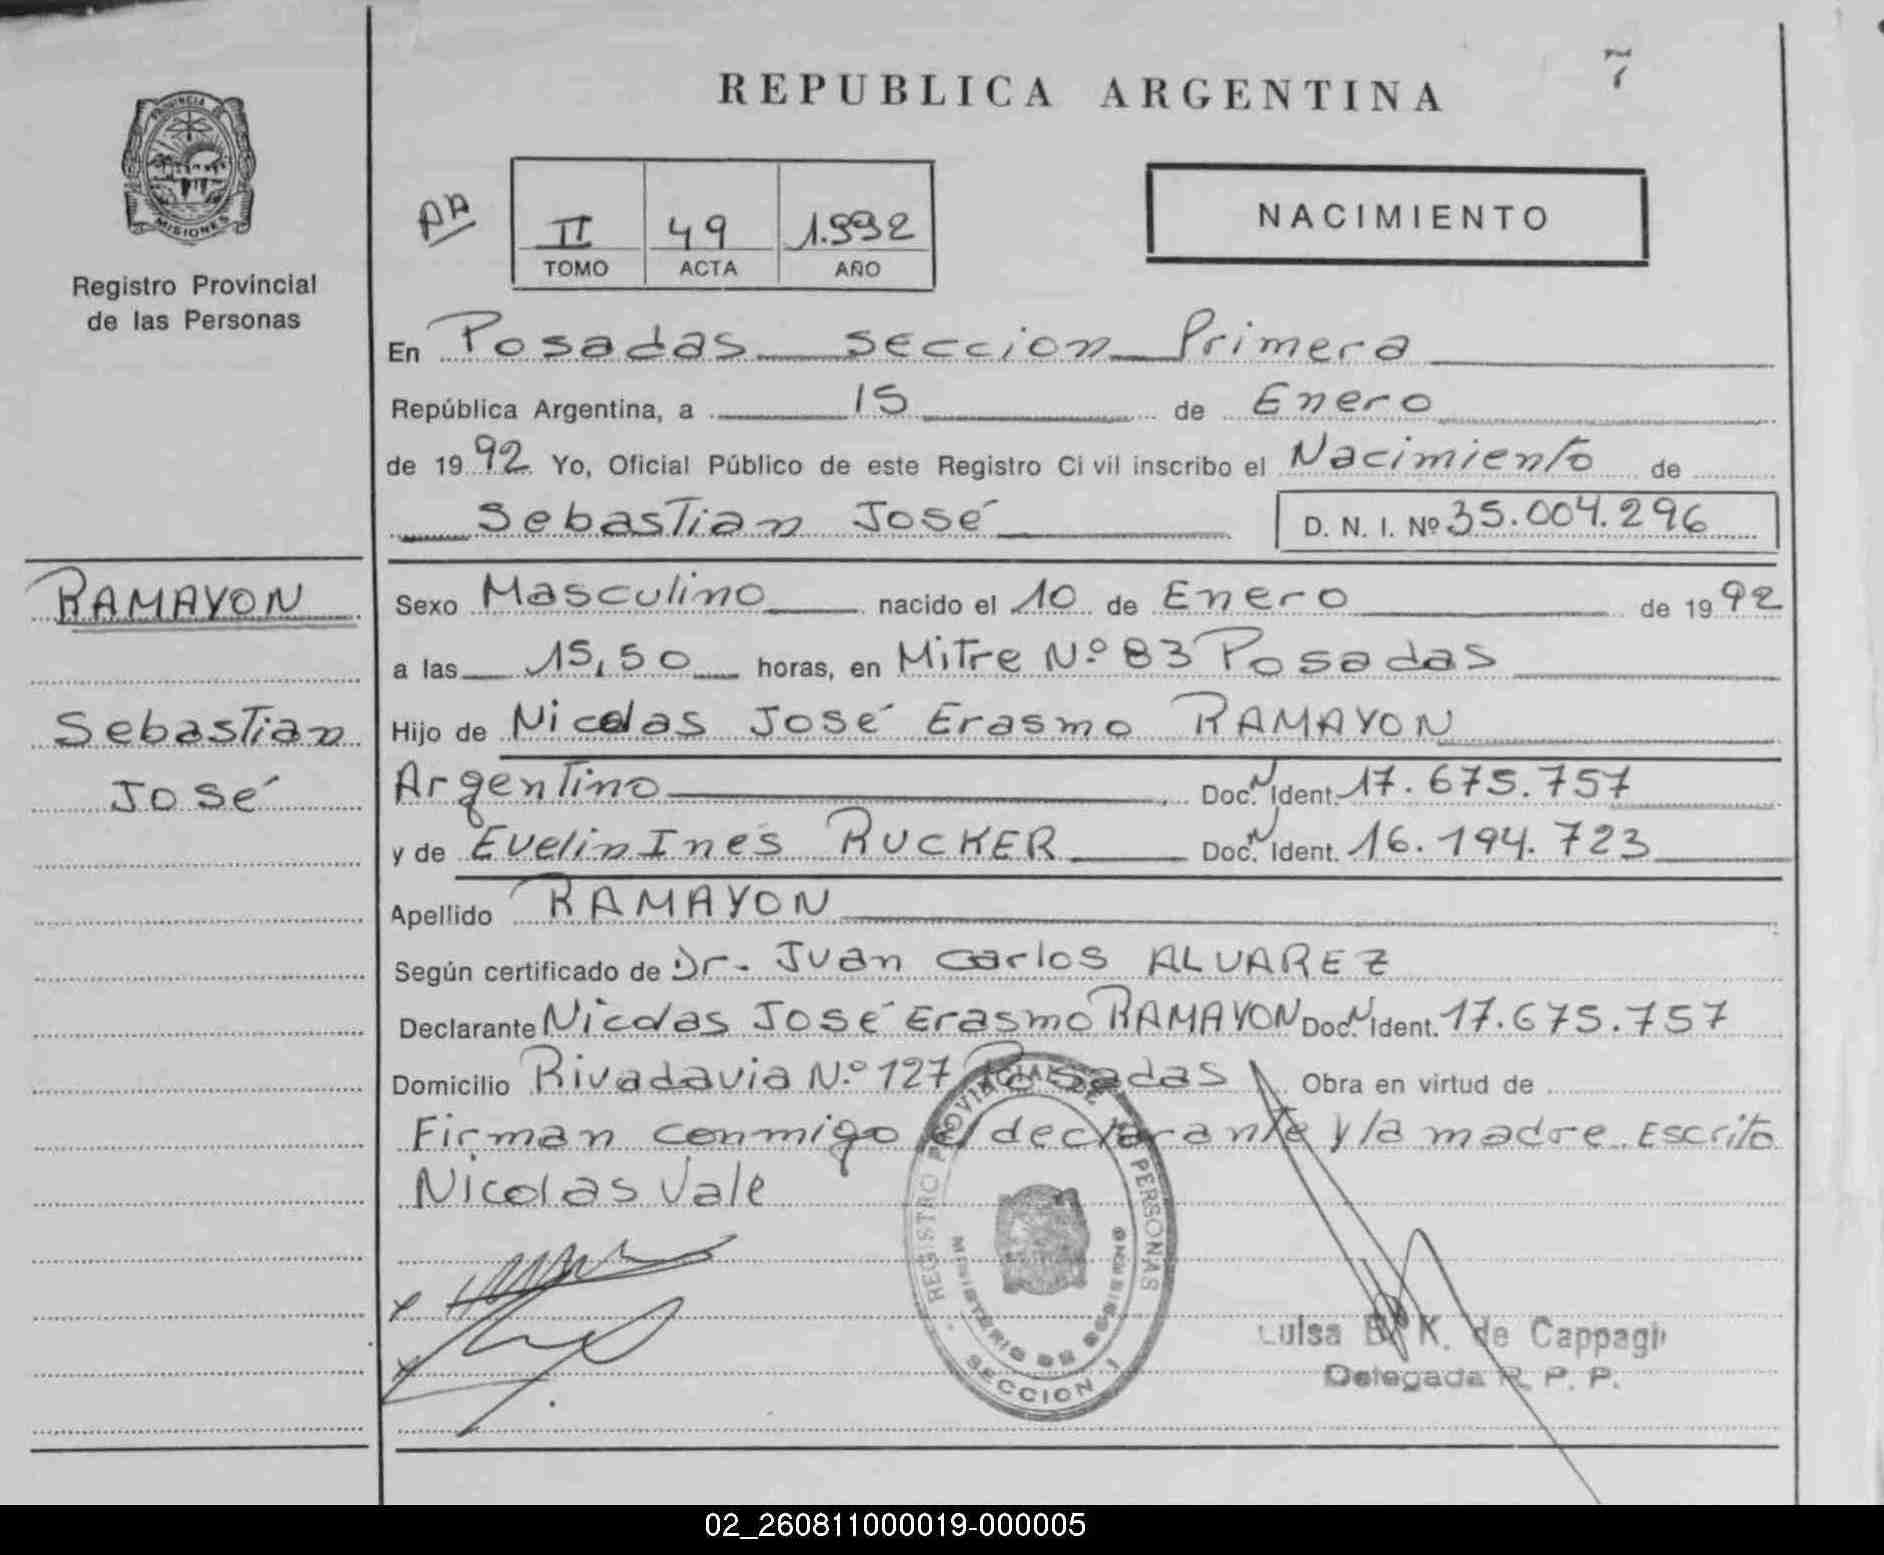 7
REPUBLICA ARGENTINA
PROVINCIA
MISIONES
Registro Provincial
de las Personas
AA
II 49 1.992
TOMO ACTA AÑO
NACIMIENTO
En Posadas seccion Primera
República Argentina, a 15 de Enero
de 19 92 Yo, Oficial Público de este Registro Civil inscribo el Nacimiento de
Sebastian José D. N. I. Nº 35.004.296
RAMAYON
Sebastian
José
Sexo Masculino nacido el 10 de Enero de 19 92
a las 15,50 horas, en Mitre N.º 83 Posadas
Hijo de Nicolas José Erasmo RAMAYON
Argentino Doc. N Ident. 17.675.757
y de Evelin Ines RUCKER Doc. N Ident. 16.194.723
Apellido RAMAYON
Según certificado de Dr. Juan Carlos ALVAREZ
Declarante Nicolas José Erasmo RAMAYON Doc. N Ident. 17.675.757
Domicilio Rivadavia N.º 127 Posadas Obra en virtud de
Firman conmigo el declarante y la madre. Escrito
Nicolas Vale
REGISTRO PROVINCIAL DE PERSONAS
MINISTERIO DE GOBIERNO
SECCION 1
x
x
Luisa B. K. de Cappagli
Delegada R. P. P.
02_260811000019-000005